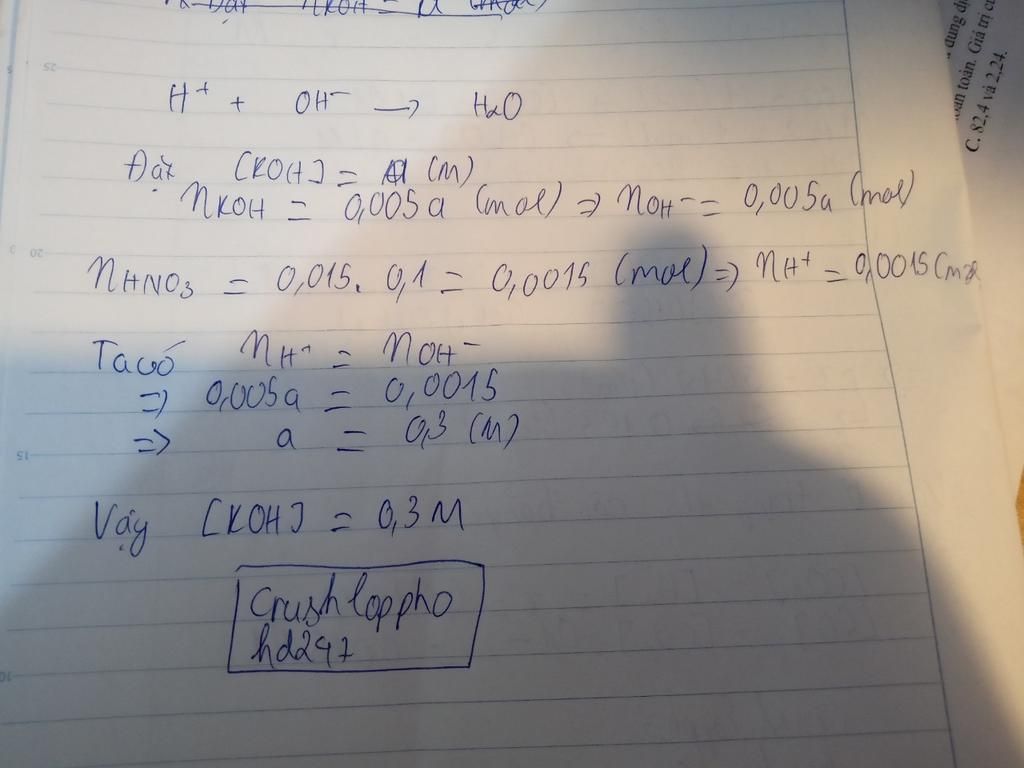 H⁺ + OH⁻ → H₂O
Đặt [KOH] = a (M)
nKOH = 0,005a (mol) ⇒ nOH⁻ = 0,005a (mol)
nHNO₃ = 0,015. 0,1 = 0,0015 (mol) ⇒ nH⁺ = 0,0015 (mol
Ta có nH⁺ = nOH⁻
⇒ 0,005a = 0,0015
⇒ a = 0,3 (M)
Vậy [KOH] = 0,3 M
Crushloppho
hd247
dung dị
toàn toàn. Giá trị củ
C. 82,4 và 2,24.